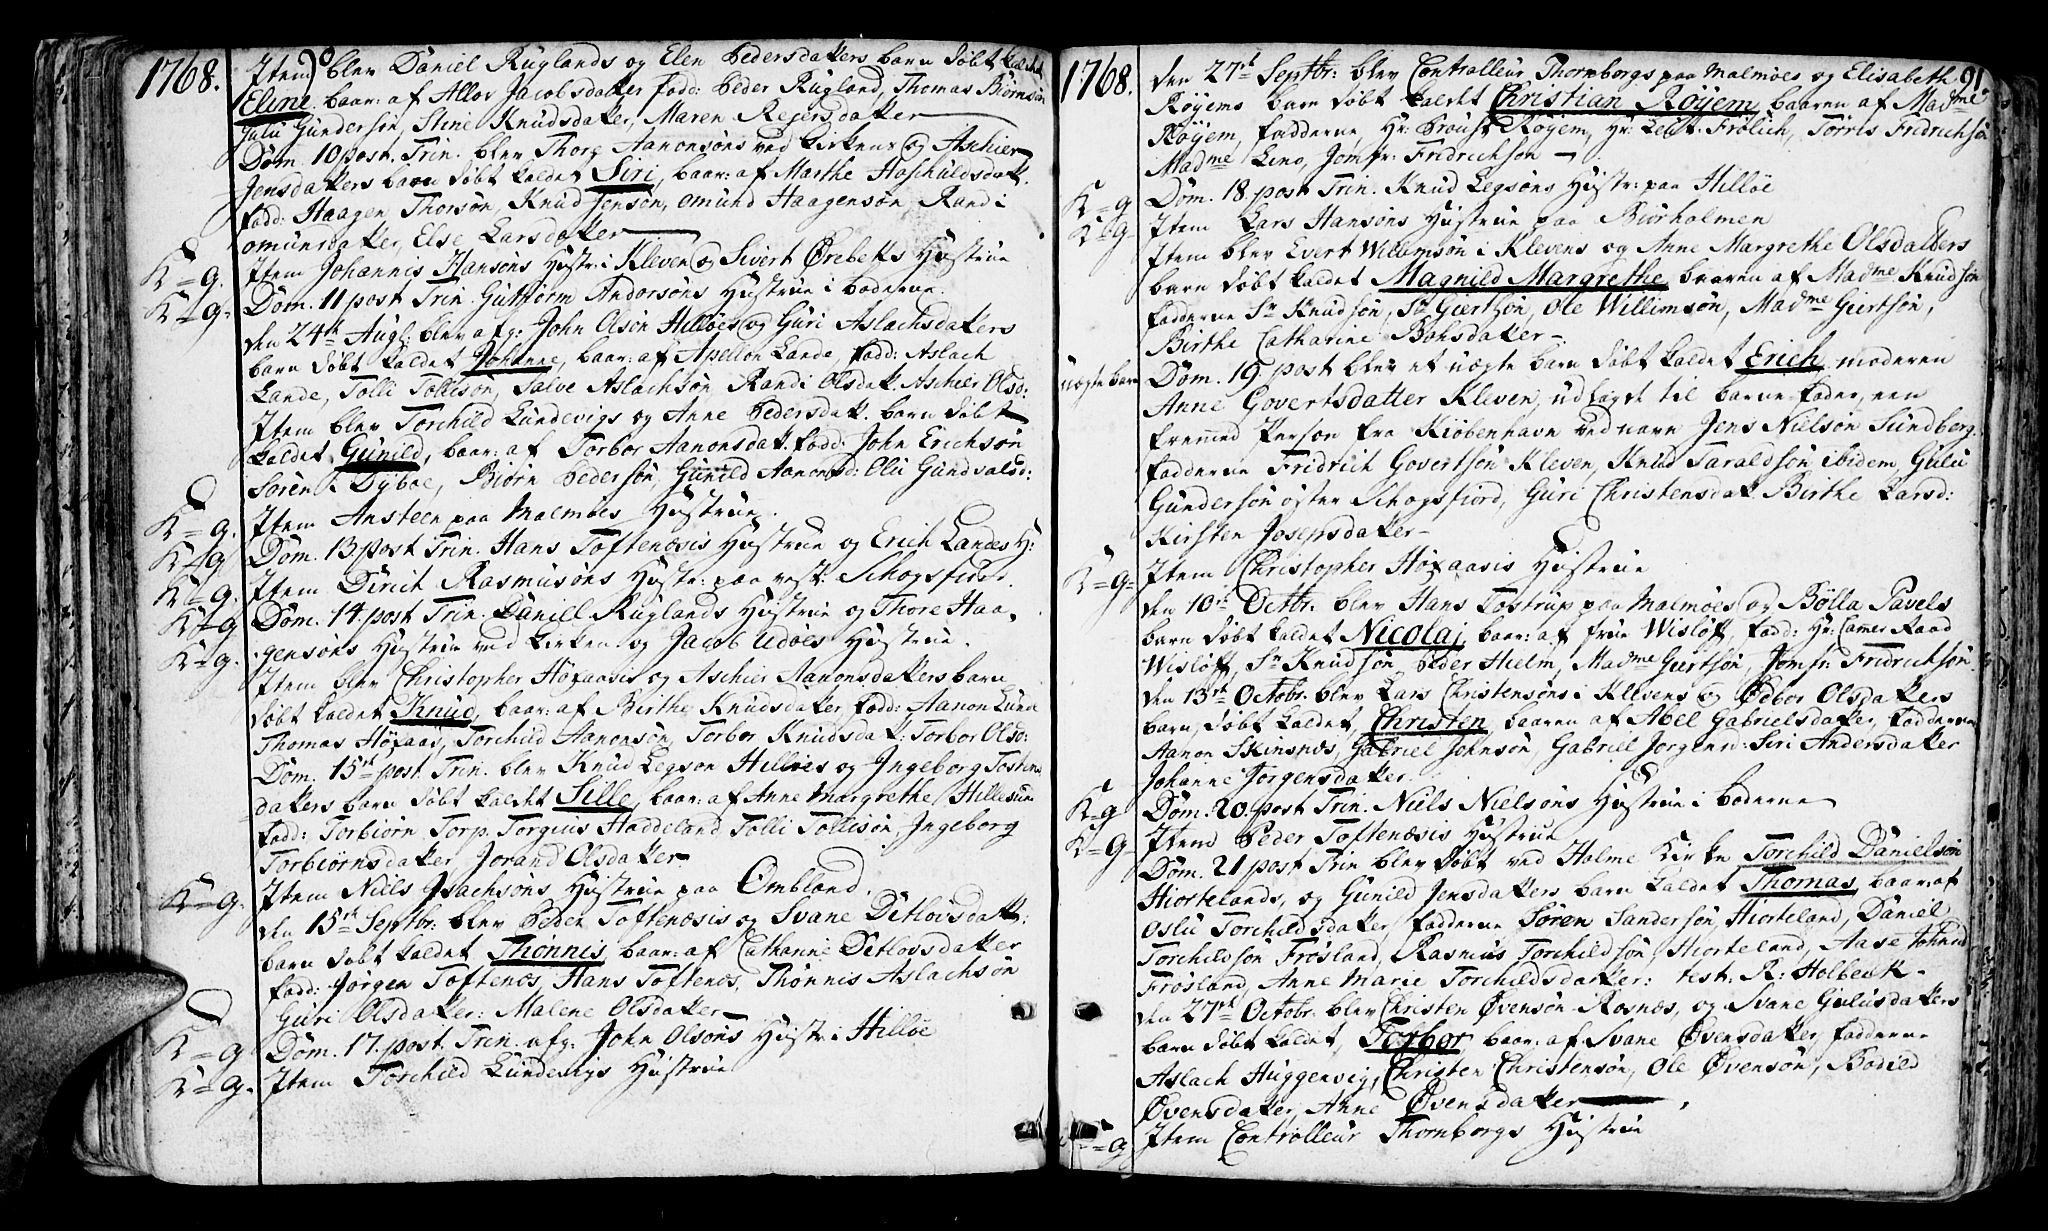 1768.
Item blev Daniel Ruglands og Elen Pedersdatters barn døbt kaldet
Eline. baar: af Allov Jacobsdatter fadd: Peder Rugland, Thomas Biørnsøn
Gulu Gundersøn, Stine Knudsdatter, Maren Reiersdatter
Dom. 10 post. Trin. blev Thore Aanonsøns ved Kirkens og Aschier
Jensdatters barn døbt kaldet Siri, baar: af Marthe Haschuldsdatt.
fadd: Haagen Thorsøn, Knud Jensøn, omund Haagensøn Randi
omunsdatter, Else Larsdatter
K=g. Item Johannis Hansøns Hustr: i Kleven og Sivert Ørebeks Hustrue
K=g. Dom. 11 post Trin. Guthorm Andorsøns Hustrue i boderne.
den 24de Aug: blev afg: John Olsøn Hilløes og Guri Aslachsdatters
barn døbt kaldet Johanne, baar: af Apellon Lande, fadd: Aslach
Lande, Tolli Tollisøn, Salve Aslachsøn Randi Olsdat. Aschier Olsd:
Item blev Torchild Lundevigs og Anne Pedersdat. barn døbt
kaldet Gunild, baar: af Torbor Aanonsdat. fadd: John Erichsøn
Søren Dyboe, Biørn Pedersøn, Gunild Aanonsd: Olu Gundvalsd:
K=g. Item Ansteen paa Malmøes Hustrue.
K=g. Dom. 13 post Trin. Hans Toftenæsis Hustrue og Erich Landes H:
K=g. Item Dirich Rasmusøns Hustr: paa vest: Schogsfiord.
K=g Dom. 14. post Trin. Daniel Ruglands Hustrue og Thore Haa-
K=g. gensøns Hustrue ved Kirken og Jacob Udøes Hustrue.
Item blev Christopher Høxaasis og Aschier Aanonsdatters barn
døbt kaldet Knud, baar: af Birthe Knudsdatter, fadd: Aanon Lunde
Thomas Høxaas, Torchild Aanonsøn, Torbor Knudsdat: Torbor Olsd:
Dom. 15de post Trin. blev Knud Legsøn Hilløes og Ingeborg Tostens
datters barn døbt kaldet Sille, baar: af Anne Margrethe Hillesun
fadd: Torbiørn Torp, Torgius Haddeland Tolli Tollisøn, Ingeborg
Torbiørnsdatter Jorand Olsdatter
K=g. Item Niels Isachsøns Hustrue paa Ombland.
den 15de Septbr: blev Peder Toftenæsis og Svane Ditlovsdatt:
barn døbt kaldet Thønnis, baar: af Cathanne Ditlovsdatter
fadd: Jørgen Toftenæs, Hans Toftenæs, Thønnis Aslachsøn
Guri Olsdatter: Malene Olsdatter
K=g Dom. 17. post. Trin. afg: John Olsøns Hustr: i Hilløe
K=g. Item Torchild Lundevigs Hustrue
1768. 91.
den 27de Septbr: blev Controlleur Thornborgs paa Malmøes og Elisabeth
Røyems barn døbt kaldet Christian Røyem, baaren af Madme
Røyem, fadderne, Hr: Proust Røyem, Hr: Leut. Frølich, Torris Fridrichsøn
Madme Lino, Jomfr: Fridrichsøn
K=g Dom. 18. post Trin. Knud Legsøns Hustr: paa Hilløe
K=g. Item Lars Hansøns Hustrue paa Biørholmen
Item blev Evert Willumsøn i Klevens og Anne Margrethe Olsdatters
barn døbt kaldet Magnild Margrethe, baaren af Madme Knudsøn
fadderne Sr Knudsøn, Sr Giertsøn, Ole Willumsøn, Madme Giertsøn,
Birthe Catharine Bohsdatter.
uægte barn Dom. 19. post blev et uægte barn døbt kaldet Erich, moderen
Anne Govertsdatter Kleven, udlagde til barne fader, een
fremmed Person fra Kiøbenhavn ved navn Jens Nielsøn Sundberg.
fadderne Fridrich Govertsøn Kleven, Knud Taraldsøn ibidem, Gulu
Gundersøn øster Schogsfiord, Guri Christensdat. Birthe Larsd:
Kirsten Josepsdatter
K=g= Item Christopher Høxaasis Hustrue
den 10de Octbr: blev Hans Tostrup paa Malmøes og Bølla Pavels
barn døbt kaldet Nicolaj, baar: af frue Wisløff, fadd: Hr: Camer Raad
Wisløff, Sr Knudsøn, Peder Hielm, Madme Giertsøn, Jomfr Fridrichsøn.
den 13de Octobr: blev Lars Christensøns i Klevens og Ødbor Olsdatters
barn, døbt kaldet, Christen, baaren af Abel Gabrielsdatter, fadderne
Aanon Skinsnæs, Gabriel Johnsøn, Gabriel Jorgensd: Siri Andersdatter
Johanne Jørgensdatter.
K=g Dom. 20. post Trin. Niels Nielsøns Hustrue i boderne
K=g= Item Peder Toftenæsis Hustrue
Dom. 21 post Trin blev døbt ved Holme Kirke Torchild Danielsøn
Hiortelands, og Gunild Jensdatters barn kaldet Thomas, baar: af
Oslu Torchildsdatter, fadderne Søren Sandersøn, Hiorteland, Daniel
Torchildsøn Frøsland, Rasmus Torchildsøn Hiorteland, Aase Johnsd
Frøsland, Anne Marie Torchildsdatter: test. R: Holbeck.
den 27de Octobr: blev Christen Øvensøn Rosnæs, og Svane Gulusdatters
barn døbt kaldet, Torbor, baar: af Svane Øvensdatter, fadderne
Aslach Huggenvig, Christen Christensøn, Ole Øvensøn, Bodild
Øvensdatter, Anne Øvensdatter
=g Item Controlleur Thornborgs Hustrue